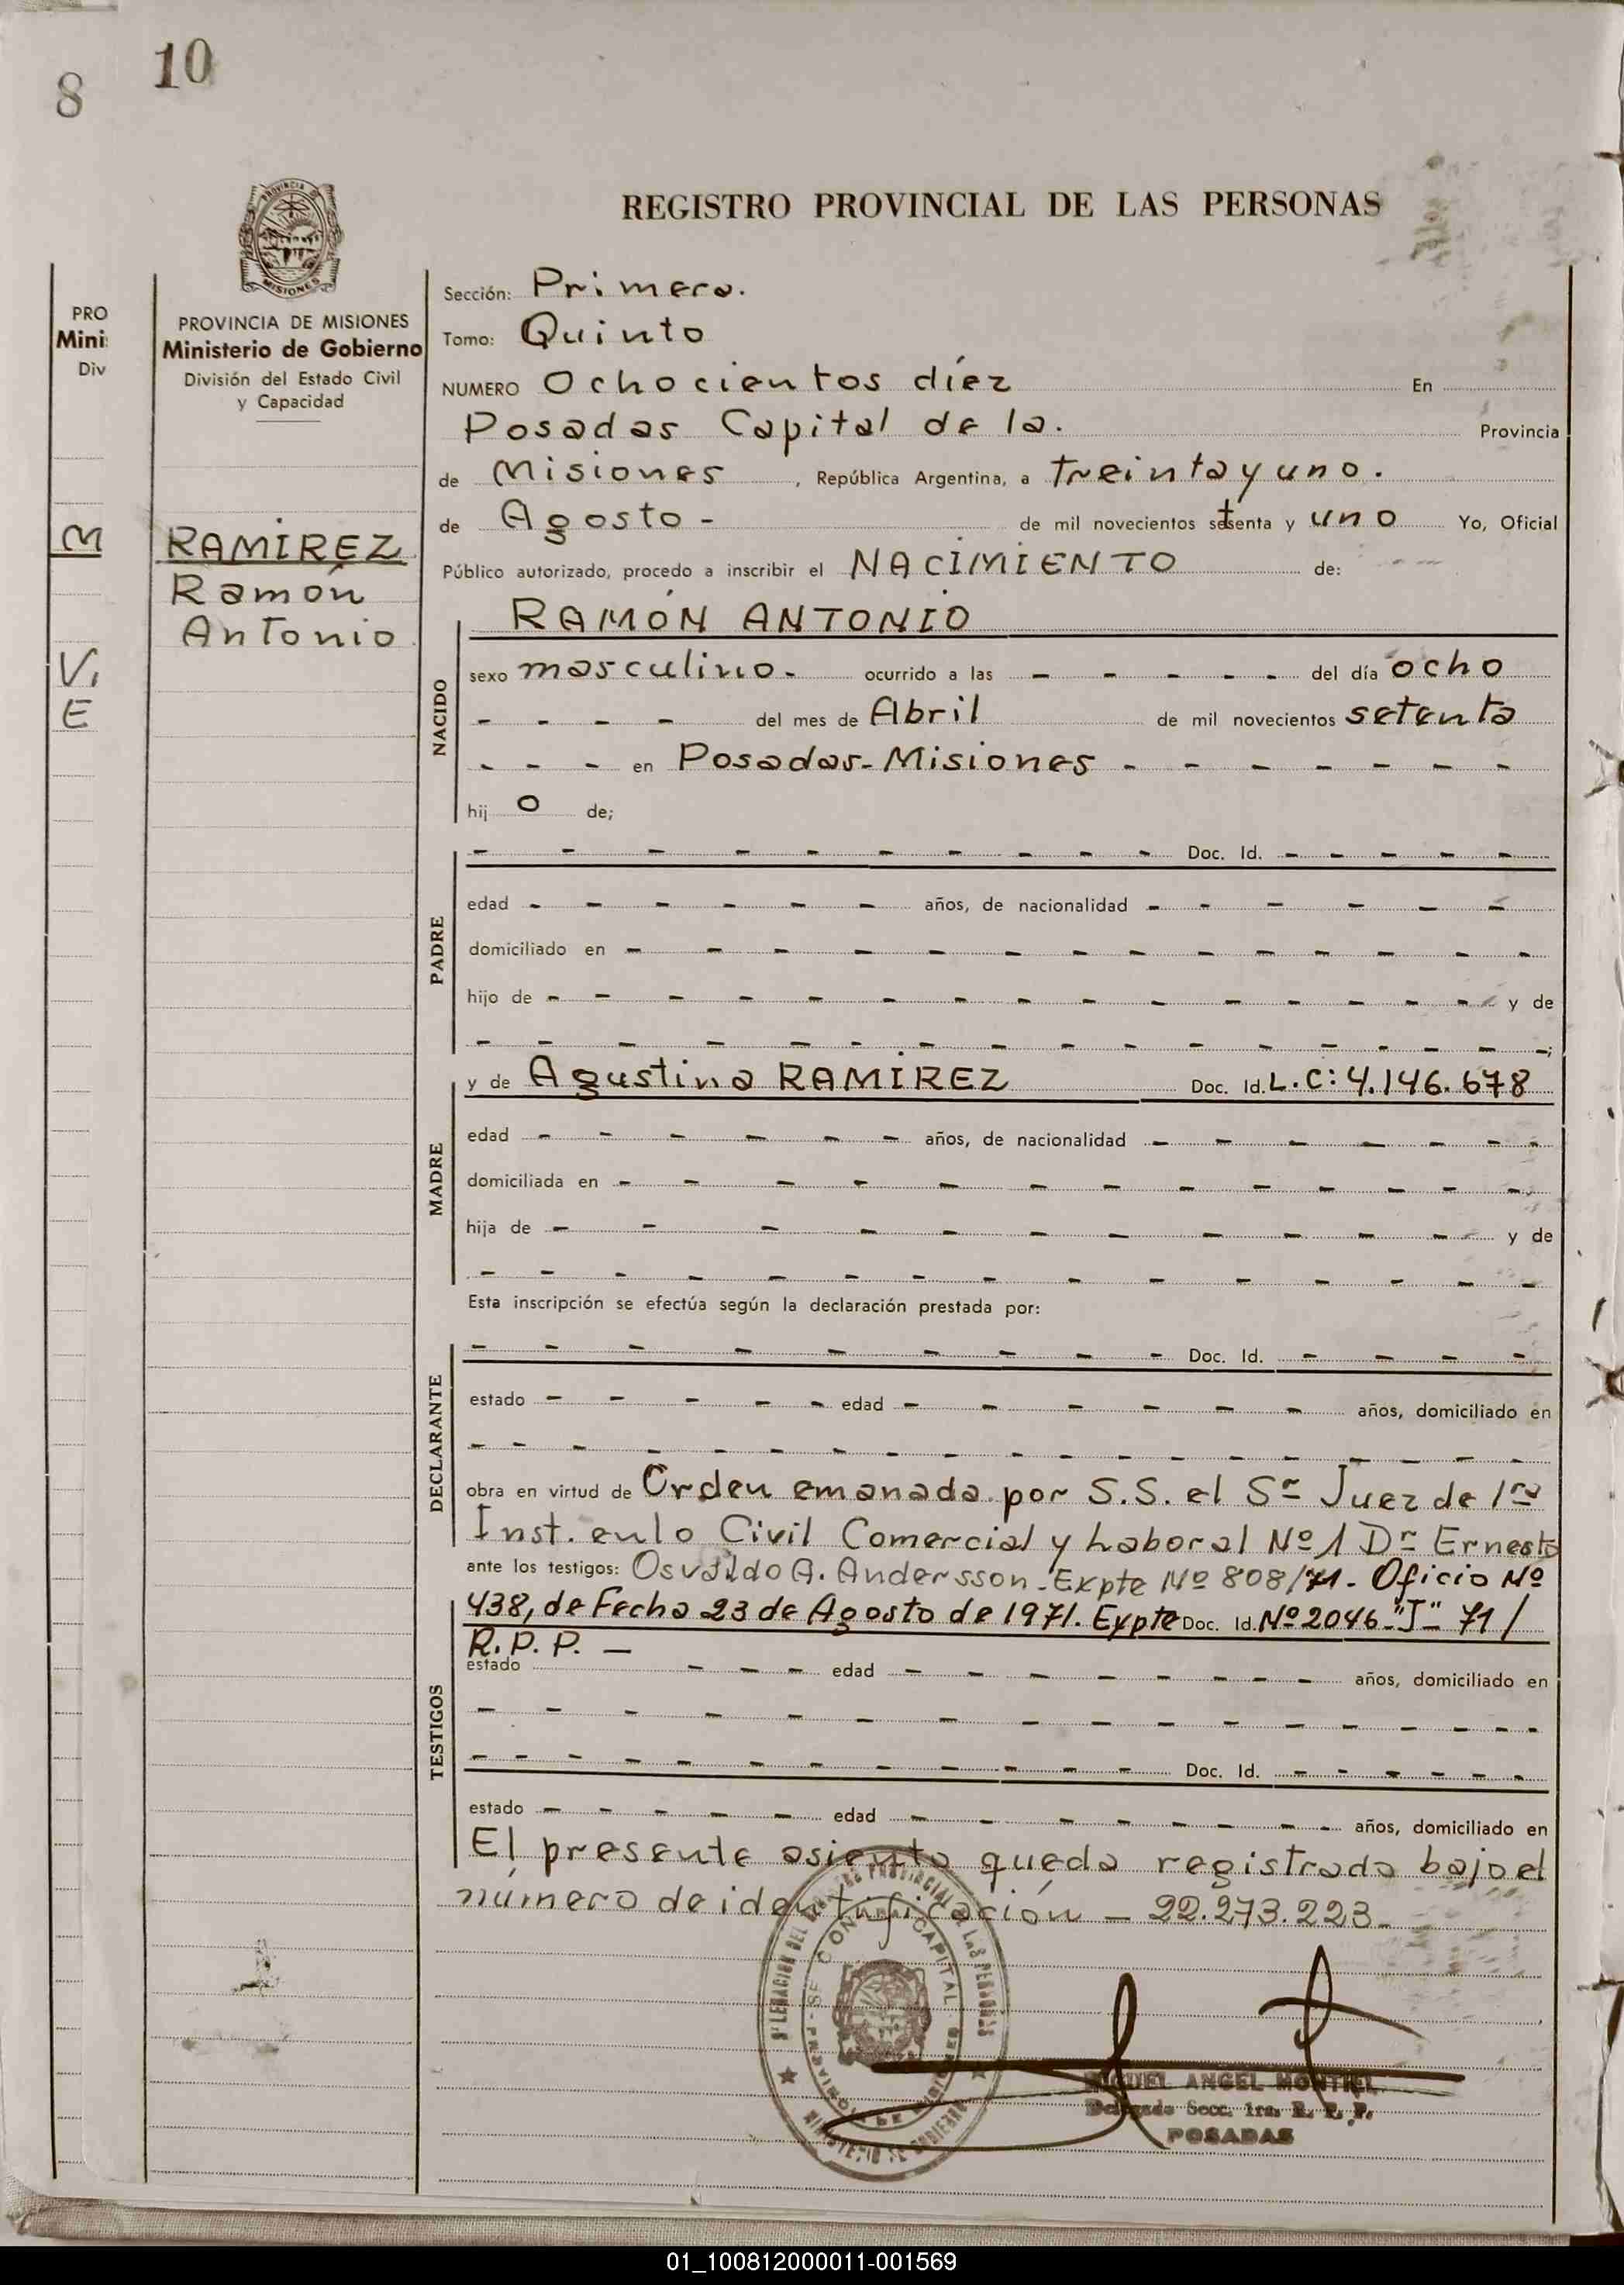 8
10
REGISTRO PROVINCIAL DE LAS PERSONAS
PROVINCIA DE MISIONES
Ministerio de Gobierno
División del Estado Civil
y Capacidad
PRO
Mini
Div
M
V
E
RAMÍREZ
Ramón
Antonio
Sección: Primera.
Tomo: Quinto
NUMERO Ochocientos díez En
Posadas Capital de la. Provincia
de Misiones, República Argentina, a treinta y uno.
de Agosto - de mil novecientos setenta y uno Yo, Oficial
Público autorizado, procedo a inscribir el NACIMIENTO de:
NACIDO
RAMÓN ANTONIO
sexo masculino. ocurrido a las - - - - - del día ocho
- - - - del mes de Abril de mil novecientos setenta
- - - en Posadas-Misiones - - - - - - -
hij o de;
PADRE
- - - - - - - - - - Doc. Id. - - - - -
edad - - - - - - años, de nacionalidad - - - - - -
domiciliado en - - - - - - - - - - - - -
hijo de - - - - - - - - - - - - - - y de
- - - - - - - - - - - - - - - - -;
MADRE
y de Agustina RAMÍREZ Doc. Id. L.C: 4.146.678
edad - - - - - - años, de nacionalidad - - - - - - -
domiciliada en - - - - - - - - - - - - -
hija de - - - - - - - - - - - y de
- - - - - - - - - - - - - - -
Esta inscripción se efectúa según la declaración prestada por:
DECLARANTE
- - - - - - - - - Doc. Id. - - - -
estado - - - - - edad - - - - - - años, domiciliado en
- - - - - - - - - - - - - - - - - -
obra en virtud de Orden emanada por S.S. el Sr Juez de 1ra
Inst. en lo Civil Comercial y Laboral Nº 1 Dr Ernesto
ante los testigos: Osvaldo A. Andersson - Expte Nº 808/71 - Oficio Nº
438, de Fecha 23 de Agosto de 1971. Expte Doc. Id. Nº 2046 - "J" - 71 /
R.P.P. —
TESTIGOS
estado - - - edad - - - - - - - años, domiciliado en
- - - - - - - - - - - - - - - - -
- - - - - - - - - - Doc. Id. - - - - - -
estado - - - - - edad - - - - - - - años, domiciliado en
El presente asiento queda registrado bajo el
número de identificación — 22.273.223-
MIGUEL ANGEL MONTIEL
Delegado Secc. 1ra. R. P. P.
POSADAS
01_100812000011-001569